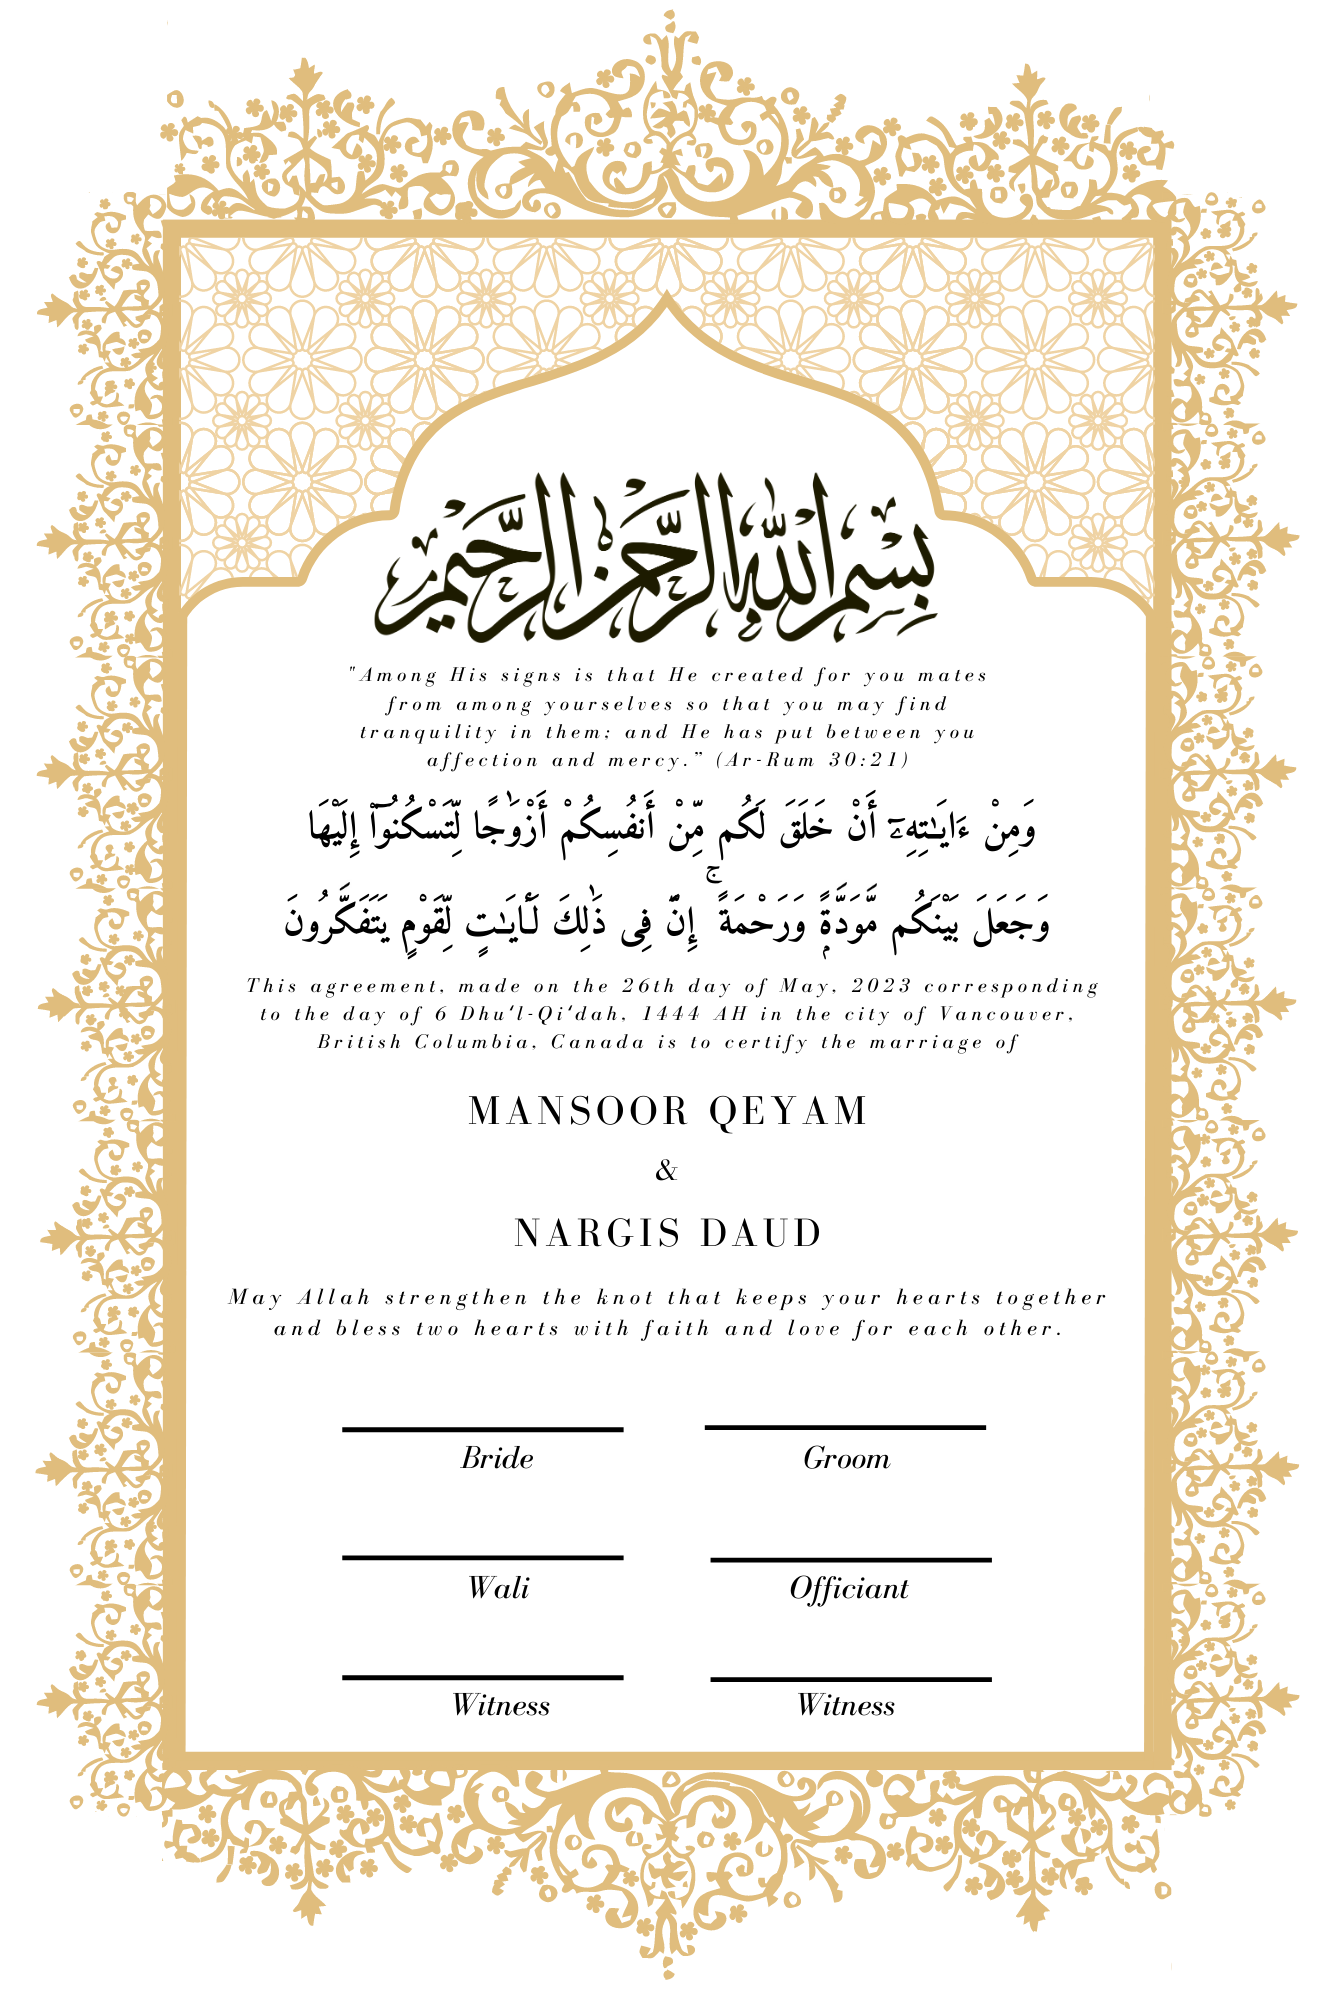 بِسْمِ اللَّهِ الرَّحْمَٰنِ الرَّحِيمِ
"Among His signs is that He created for you mates
from among yourselves so that you may find
tranquility in them; and He has put between you
affection and mercy.” (Ar-Rum 30:21)
وَمِنْ ءَايَـٰتِهِۦٓ أَنْ خَلَقَ لَكُم مِّنْ أَنفُسِكُمْ أَزْوَٰجًا لِّتَسْكُنُوٓا۟ إِلَيْهَا
وَجَعَلَ بَيْنَكُم مَّوَدَّةًۭ وَرَحْمَةً ۚ إِنَّ فِى ذَٰلِكَ لَـَٔايَـٰتٍ لِّقَوْمٍ يَتَفَكَّرُونَ
This agreement, made on the 26th day of May, 2023 corresponding
to the day of 6 Dhuʻl-Qiʻdah, 1444 AH in the city of Vancouver,
British Columbia, Canada is to certify the marriage of
MANSOOR QEYAM
&
NARGIS DAUD
May Allah strengthen the knot that keeps your hearts together
and bless two hearts with faith and love for each other.
Bride
Groom
Wali
Officiant
Witness
Witness